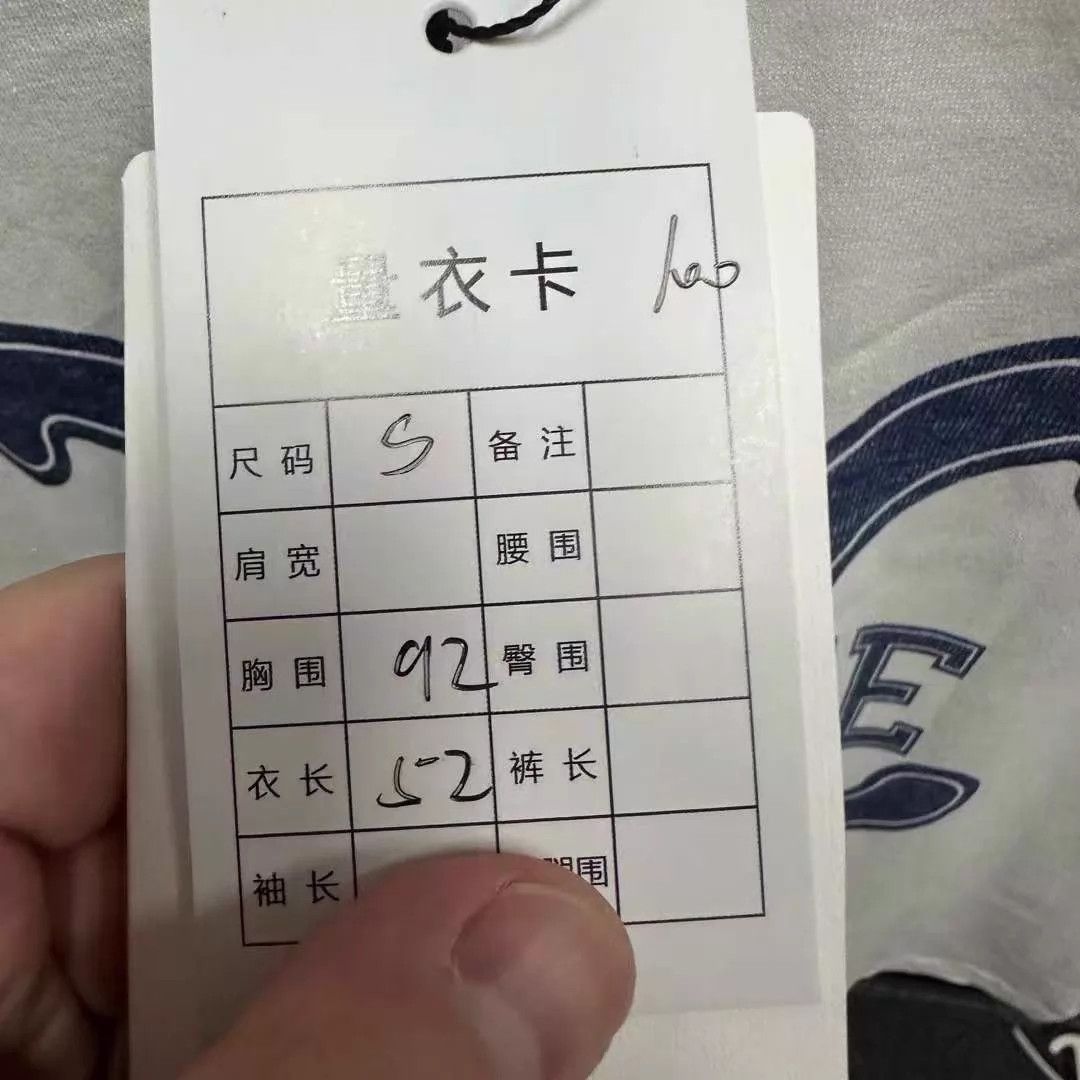 量衣卡
尺码 S 备注
肩宽 腰围
胸围 92 臀围
衣长 52 裤长
袖长 围
E